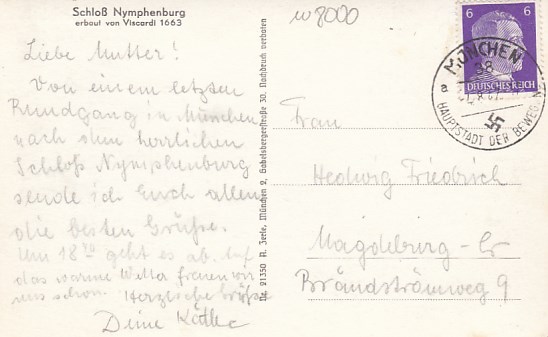 Schloß Nymphenburg
erbaut von Viscardi 1663
w 8000
6 6
DEUTSCHES REICH
MÜNCHEN
38
a
HAUPTSTADT DER BEWEGUNG
Liebe Mutter!
Von einem letzten
Rundgang in München
nach dem herrlichen
Schloß Nymphenburg
sende ich Euch allen
die besten Grüße.
Um 18 geht es ab. Auf
das warme Wetter freuen wir
uns schon. Herzliche Grüße
Deine Käthe
Nr. 21350 A. Zerle, München 2, Gabelsbergerstraße 30. Nachdruck verboten
Frau
Hedwig Friedrich
Magdeburg-Cr
Brandströmweg 9